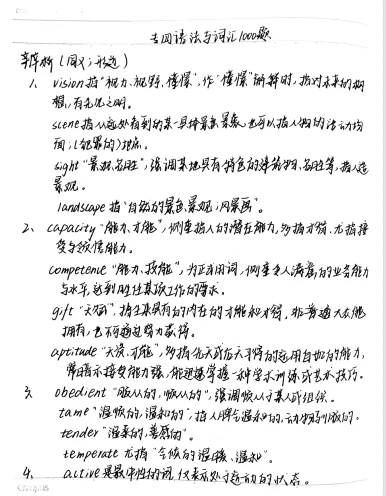 专四语法与词汇1000题
辨析(同义;形近)
1、vision 指"视力、视野、憧憬",作"憧憬"解释时,指对未来的期
有先见之明。
scene 指从远处看到的某一具体景色景象,也可以指人物的活动场
面;(犯罪的)地点。
sight "景观、名胜",强调某地具有特色的建筑物、名胜等,指人造
景观。
landscape 指"自然的景色、景观;风景画"。
2、capacity "能力、才能",侧重指人的潜在能力,多指才领、尤指接
受与领悟能力。
competence "能力、技能",为正式用词,侧重令人满意的业务能力
与水平,达到胜任某项工作的要求。
gift "天赋",指生来具有的内在的才能和才领,非普通人在他
拥有,也不通过努力获得。
aptitude "天资、才能",多指先天或后天习得的运用自如的能力,
常暗示接受能力强、能迅速掌握一种学术训练或艺术技巧。
3、obedient "服从的、顺从的",强调顺从于某人或组织。
tame "温顺的、温和的",指人脾气温和的,动物驯服的。
tender "温柔的、善感的"。
temperate 尤指"气候的温暖、温和"。
4、active 是最中性的词,仅表示处于运动的状态。